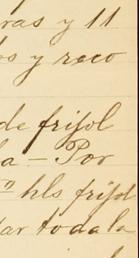 ras y 11
os y reco
de frijol
la - Por
" hls frijol
ar toda la